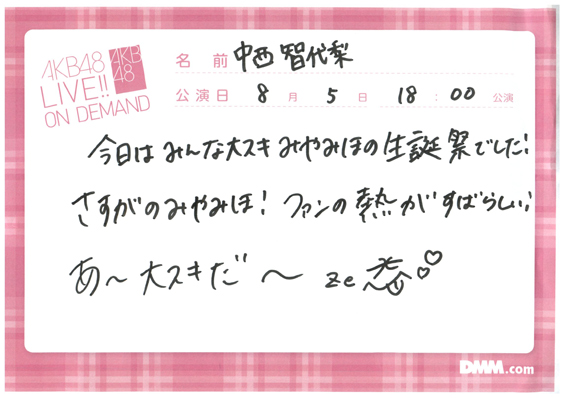 AKB48
LIVE!!
ON DEMAND
AKB
48
名前 中西 智代梨
公演日 8月5日 18:00 公演
今日はみんな大スキみやみほの生誕祭でした!
さすがのみやみほ! ファンの熱がすばらしい!
あ〜大スキだ〜 ze
DMM.com